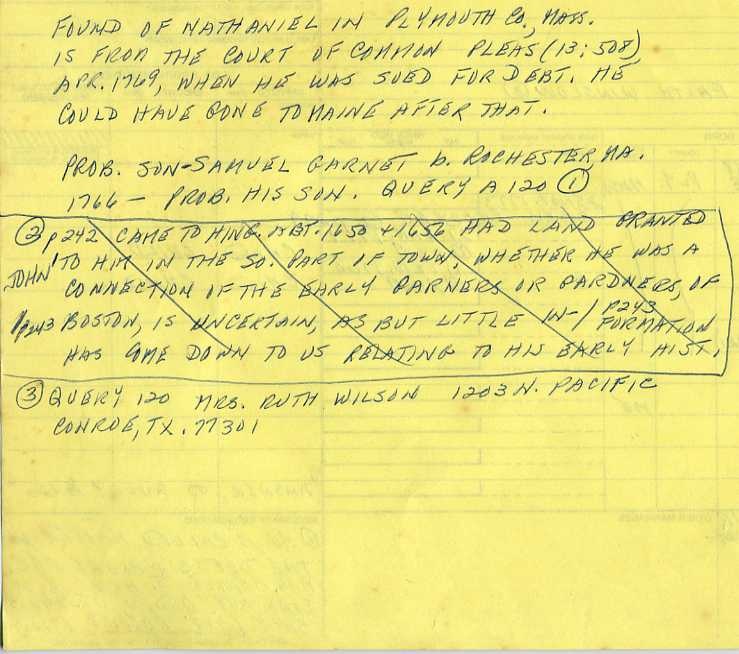 FOUND OF NATHANIEL IN PLYMOUTH CO, MASS.
IS FROM THE COURT OF COMMON PLEAS (13:508)
APR. 1769, WHEN HE WAS SUED FOR DEBT. HE
COULD HAVE GONE TO MAINE AFTER THAT.
PROB. SON-SAMUEL GARNET b. ROCHESTER, MA.
1766 - PROB. HIS SON. QUERY A 120 ①
② p 242 CAME TO HING. ABT. 1650 + 1656 HAD LAND GRANTED
JOHN' TO HIM IN THE SO. PART OF TOWN, WHETHER HE WAS A
CONNECTION OF THE EARLY GARNERS OR GARDNERS, OF
p243 BOSTON, IS UNCERTAIN, AS BUT LITTLE IN-/ P243 FORMATION
HAS COME DOWN TO US RELATING TO HIS EARLY HIST.
③ QUERY 120 MRS. RUTH WILSON 1203 N. PACIFIC
CONROE, TX. 77301